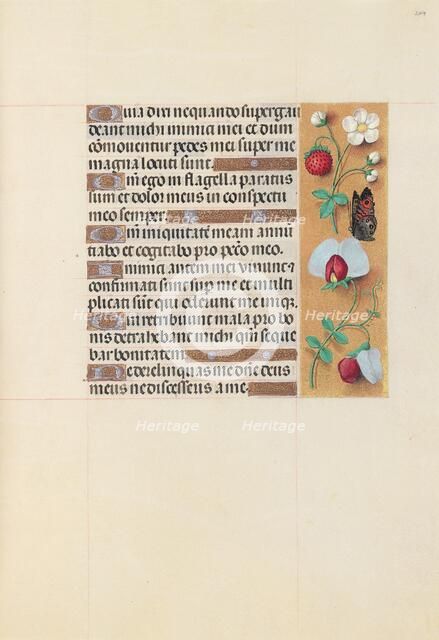 204
Quia dixi nequando supergau
deant michi inimici mei et dum
comoventur pedes mei super me
magna locuti sunt.
Qm ego in flagella paratus
sum et dolor meus in conspectu
meo semper.
Qm iniquitatē meam annū
tiabo et cogitabo pro pcc̄o meo.
Inimici autem mei vivunt et
confirmati sunt super me et multi
plicati sūt qui oderunt me iniq̄.
Qui retribuunt mala pro bo
nis detrahebant michi qm̄ seque
bar bonitatem.
Ne derelinquas me dn̄e deus
meus ne discesseris a me.
Heritage
Heritage
Heritage
Heritage
Heritage
Heritage